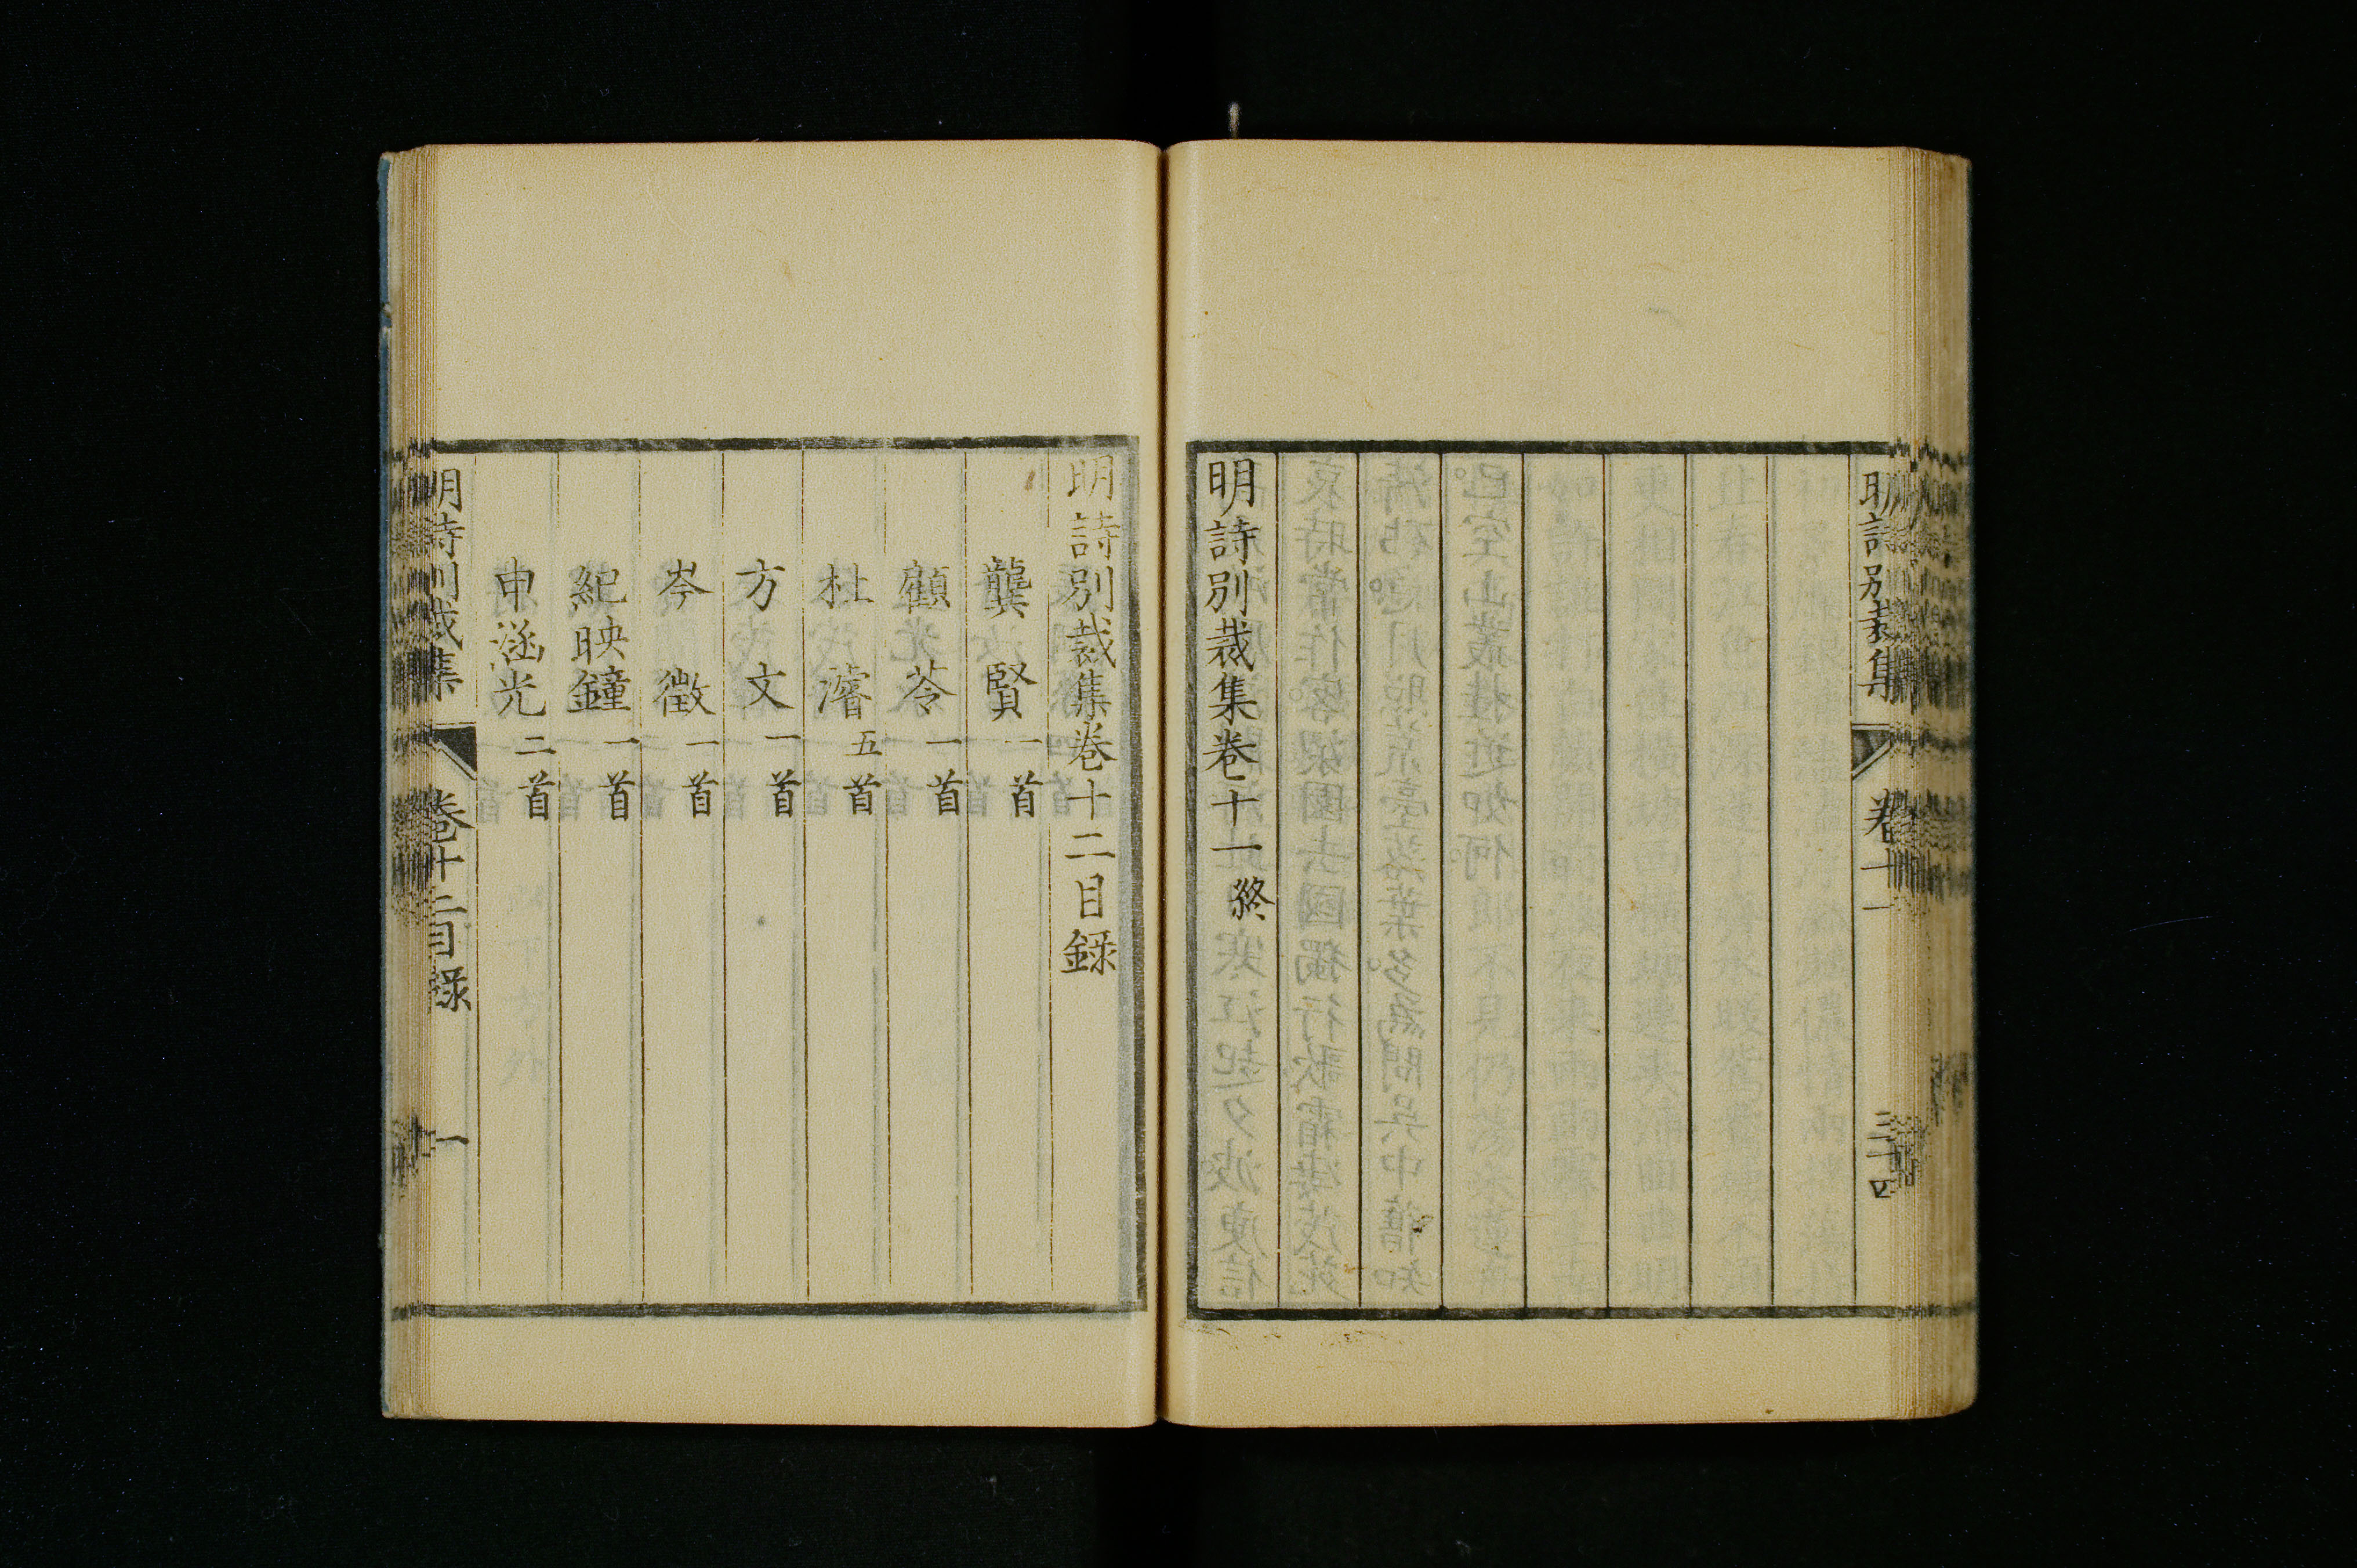 明詩別裁集 卷十一 三十四
明詩別裁集卷十一終
明詩別裁集卷十二目錄
龔賢一首
顧苓一首
杜濬五首
方文一首
岑徵一首
紀映鐘一首
申涵光二首
明詩別裁集 卷十二目錄 一